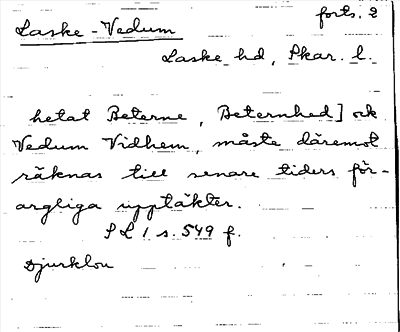 forts. 2
Laske-Vedum
Laske hd, Skar. l.
hetat Beterne, Beternhed] ock
Vedum Vidhem, måste däremot
räknas till senare tiders för-
argliga upptäkter.
SL 1 s. 549 f.
Djurklou